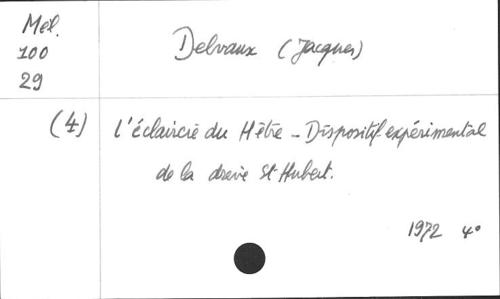 Mél.
100
29
Delvaux (Jacques)
(4) L'éclaircie du Hêtre - Dispositif expérimental
de la drève St-Hubert.
1972 4°